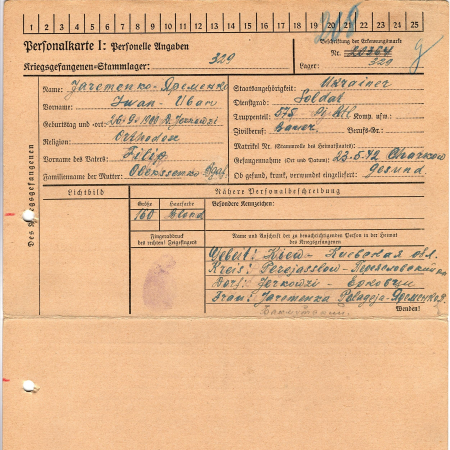 1 2 3 4 5 6 7 8 9 10 11 12 13 14 15 16 17 18 19 20 21 22 23 24 25
Personalkarte I: Personelle Angaben
Beschriftung der Erkennungsmarke
Nr. 20364
Kriegsgefangenen-Stammlager: 329
Lager: 329
Des Kriegsgefangenen
Name: Jaremenko-Яременко
Vorname: Iwan-Иван
Geburtstag und -ort: 1900
Religion: Orthodox
Vorname des Vaters: Filip
Familienname der Mutter:
Staatsangehörigkeit: Ukrainer
Dienstgrad: Soldat
Truppenteil: 575 Komp. usw.:
Zivilberuf: Bauer Berufs-Gr.:
Matrikel Nr. (Stammrolle des Heimatstaates):
Gefangennahme (Ort und Datum): 23.5.42 Charkow
Ob gesund, krank, verwundet eingeliefert: gesund
Lichtbild
Nähere Personalbeschreibung
Größe Haarfarbe Besondere Kennzeichen:
160 Blond
Fingerabdruck
des rechten! Zeigefingers
Name und Anschrift der zu benachrichtigenden Person in der Heimat
des Kriegsgefangenen
Gebiet: Kiew-Киевская обл.
Kreis: Perejasslow-Переяславский
Dorf: Jerkowzi-Ерковцы
Frau: Jaremenka Pelageja-Яременко
Wenden!